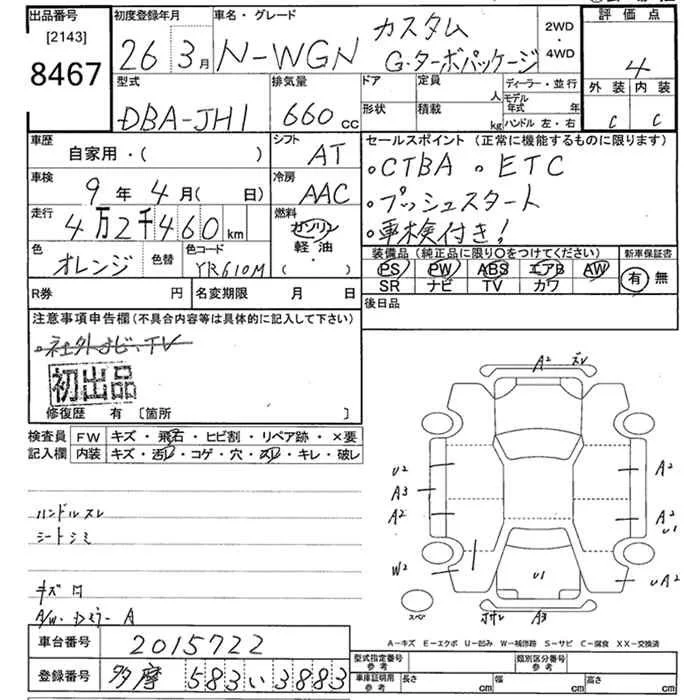 出品番号 [2143] 8467
初度登録年月 26年 3月
車名・グレード N-WGN カスタム G・ターボパッケージ
2WD・4WD
評価点 4
外装 C 内装 C
型式 DBA-JH1
排気量 660 cc
ドア 定員 人
形状 積載 kg
ディーラー・並行
モデル年式 年
ハンドル 左・右
車歴 自家用・( )
シフト AT
車検 9年 4月( 日)
冷房 AAC
走行 4万2千460 km
燃料 ガソリン 軽油 ・( )
色 オレンジ 色替 色コード YR610M
セールスポイント (正常に機能するものに限ります)
。CTBA 。ETC
。プッシュスタート
。車検付き!
装備品 (純正品に限り○をつけてください)
PS PW ABS エアB AW
SR ナビ TV カワ
新車保証書 有 無
R券 円 名変期限 月 日
後日品
注意事項申告欄(不具合内容等は具体的に記入して下さい)
。社外ナビ、TV
初出品
修復歴 有 [箇所 ]
検査員記入欄
FW キズ・飛石・ヒビ割・リペア跡・×要
内装 キズ・汚レ・コゲ・穴・スレ・キレ・破レ
ハンドルスレ
シートシミ
A2
U2 A2
A3
A2 A2
U1
W2 U1 UA2
スペア A3
A-キズ E-エクボ U-凹み W-補修跡 S-サビ C-腐食 XX-交換済
車台番号 2015722
登録番号 多摩 583 い 3883
型式指定番号 参考 類別区分番号 参考
車庫証明用 参考 長さ cm 幅 cm 高さ cm